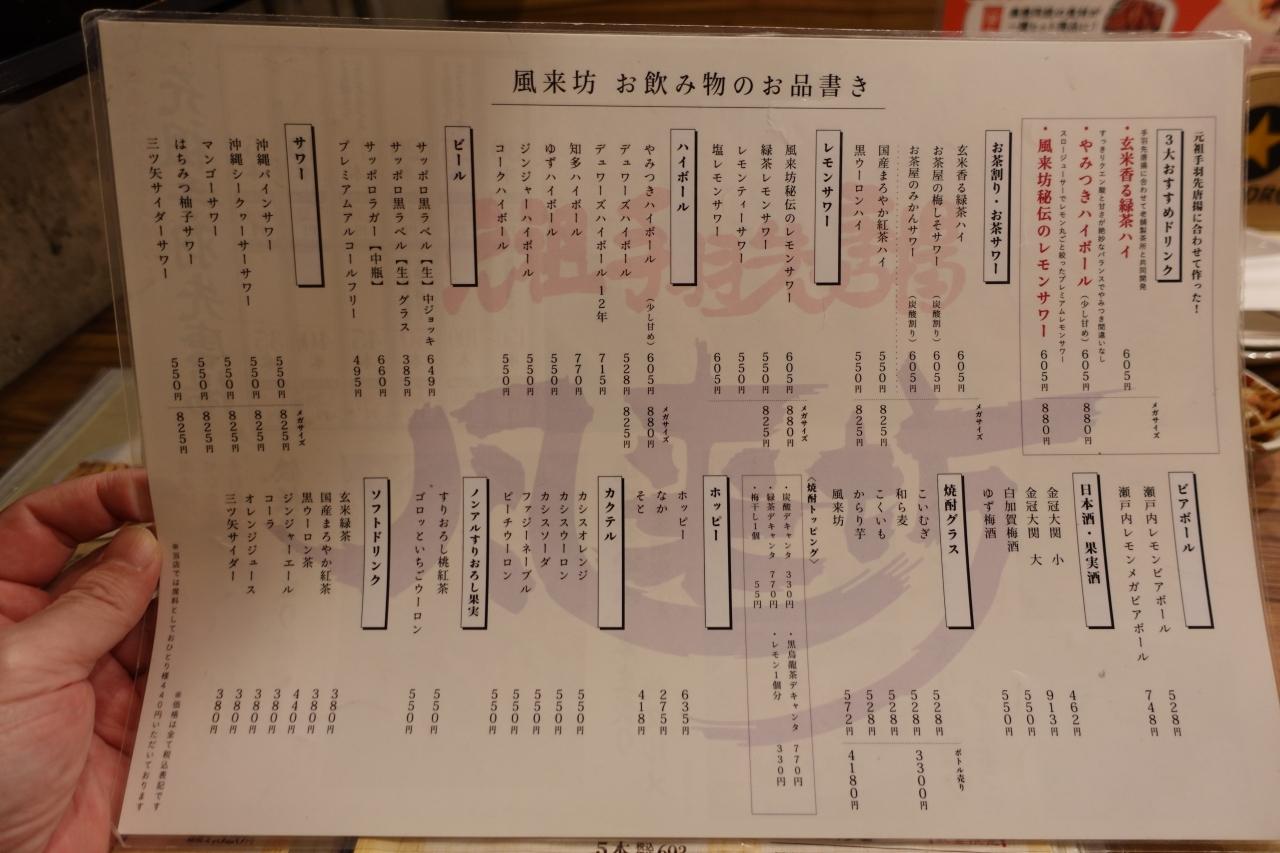 風来坊 お飲み物のお品書き
元祖手羽先唐揚に合わせて作った！
3大おすすめドリンク
手羽先唐揚に合わせて老舗製茶所と共同開発
・玄米香る緑茶ハイ 605円
すっきりクエン酸と甘さが絶妙なバランスでやみつき間違いなし
・やみつきハイボール（少し甘め） 605円 880円
スロージューサーでレモン丸ごと絞ったプレミアムレモンサワー
・風来坊秘伝のレモンサワー 605円 880円
メガサイズ
お茶割り・お茶サワー
メガサイズ
玄米香る緑茶ハイ 605円
お茶屋の梅しそサワー（炭酸割り） 605円
お茶屋のみかんサワー（炭酸割り） 605円
国産まろやか紅茶ハイ 550円 825円
黒ウーロンハイ 550円 825円
レモンサワー
メガサイズ
風来坊秘伝のレモンサワー 605円 880円
緑茶レモンサワー 550円 825円
レモンティーサワー 550円
塩レモンサワー 605円
ハイボール
メガサイズ
やみつきハイボール（少し甘め） 605円 880円
デュワーズハイボール 528円 825円
デュワーズハイボール 12年 715円
知多ハイボール 770円
ゆずハイボール 550円
ジンジャーハイボール 550円
コークハイボール 550円
ビール
サッポロ黒ラベル【生】中ジョッキ 649円
サッポロ黒ラベル【生】グラス 385円
サッポロラガー【中瓶】 660円
プレミアムアルコールフリー 495円
サワー
メガサイズ
沖縄パインサワー 550円 825円
沖縄シークヮーサーサワー 550円 825円
マンゴーサワー 550円 825円
はちみつ柚子サワー 550円 825円
三ツ矢サイダーサワー 550円 825円
ビアボール
瀬戸内レモンビアボール 528円
瀬戸内レモンメガビアボール 748円
日本酒・果実酒
金冠大関 小 462円
金冠大関 大 913円
白加賀梅酒 550円
ゆず梅酒 550円
焼酎グラス
ボトル売り
こいむぎ 528円 3300円
和ら麦 528円
こくいも 528円
からり芋 528円
風来坊 572円 4180円
〈焼酎トッピング〉
・炭酸デキャンタ 330円
・緑茶デキャンタ 770円
・梅干し1個 55円
・黒烏龍茶デキャンタ 770円
・レモン1個分 330円
ホッピー
ホッピー 635円
なか 275円
そと 418円
カクテル
カシスオレンジ 550円
カシスウーロン 550円
カシスソーダ 550円
ファジーネーブル 550円
ピーチウーロン 550円
ノンアルすりおろし果実
すりおろし桃紅茶 550円
ゴロッといちごウーロン 550円
ソフトドリンク
玄米緑茶 380円
国産まろやか紅茶 380円
黒ウーロン茶 440円
ジンジャーエール 380円
コーラ 380円
オレンジジュース 380円
三ツ矢サイダー 380円
※価格は全て税込表記です
※当店では席料としておひとり様440円いただいております
風来坊
5本 税込 602